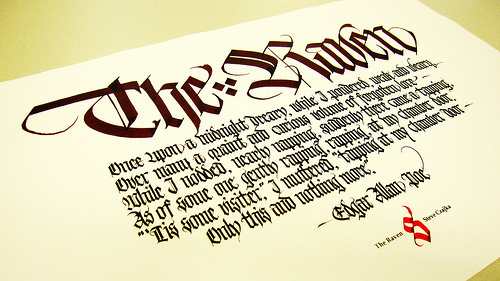 The Raven
Once upon a midnight dreary, while I pondered, weak and weary,
Over many a quaint and curious volume of forgotten lore—
While I nodded, nearly napping, suddenly there came a tapping,
As of some one gently rapping, rapping at my chamber door.
"'Tis some visiter," I muttered, "tapping at my chamber door—
Only this and nothing more."
—Edgar Allan Poe
The Raven
Steve Czajka